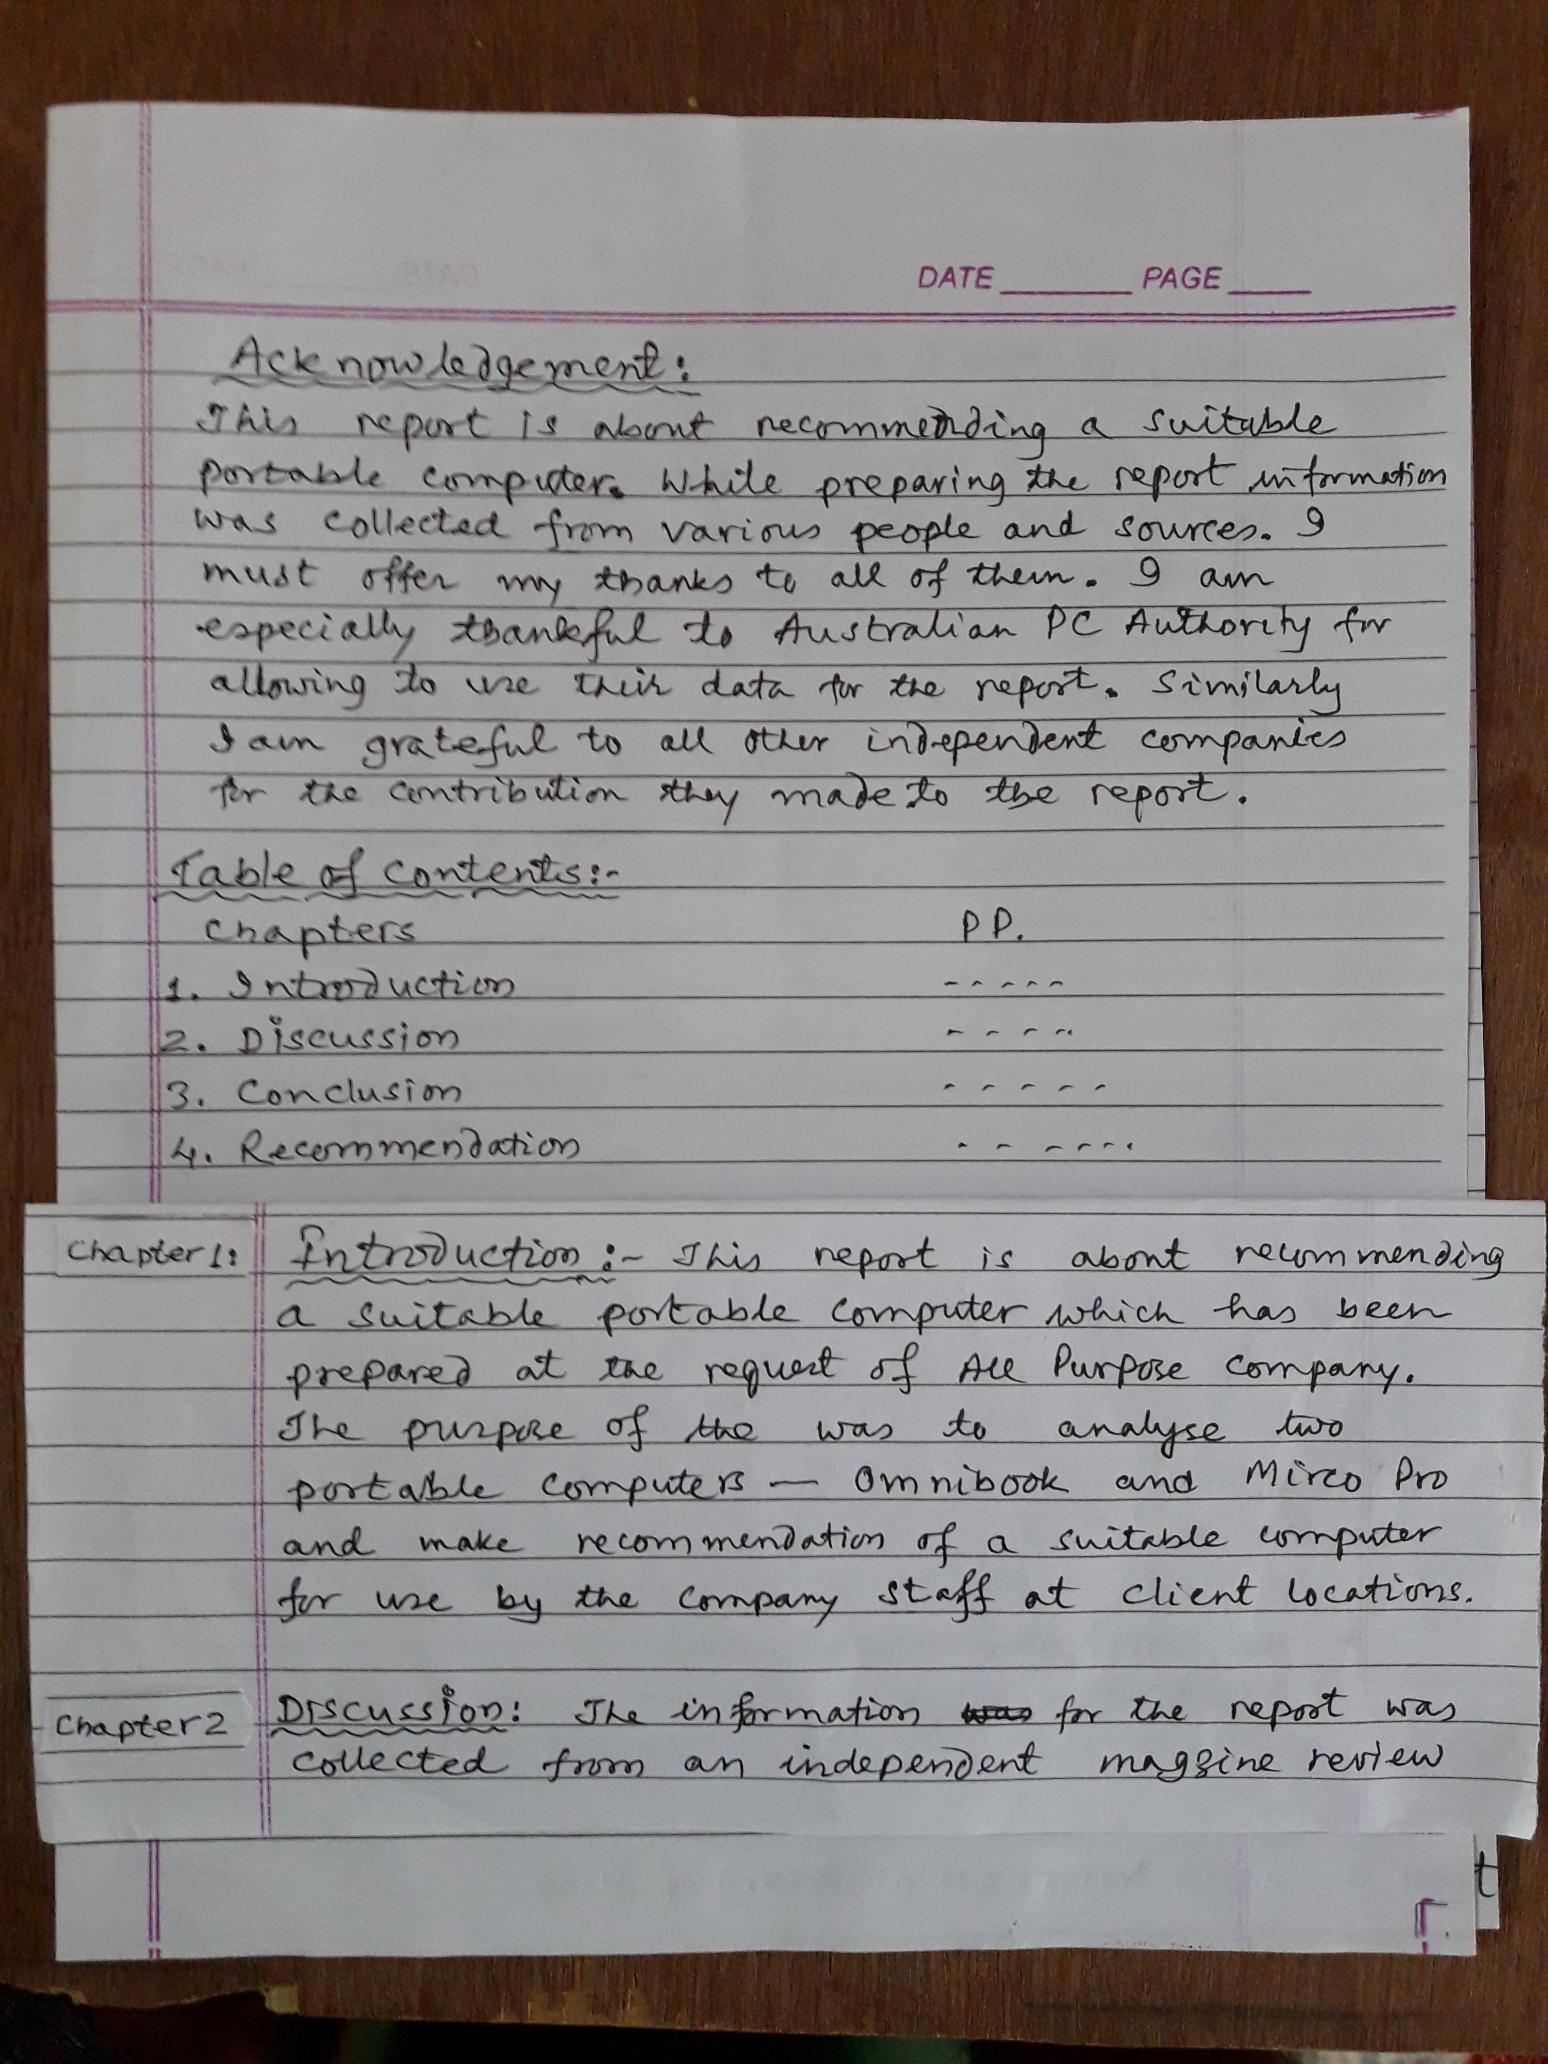 DATE ________ PAGE ____
Acknowledgement:
This report is about recommending a suitable
portable computer. While preparing the report information
was collected from various people and sources. I
must offer my thanks to all of them. I am
especially thankful to Australian PC Authority for
allowing to use their data for the report. Similarly
I am grateful to all other independent companies
for the contribution they made to the report.
Table of contents:-
Chapters PP.
1. Introduction -----
2. Discussion ----
3. Conclusion -----
4. Recommendation ------
Chapter 1: Introduction :- This report is about recommending
a suitable portable computer which has been
prepared at the request of All Purpose company.
The purpose of the was to analyse two
portable computers — Omnibook and Mirco Pro
and make recommendation of a suitable computer
for use by the company staff at client locations.
Chapter 2 Discussion: The information was for the report was
collected from an independent magzine review
t